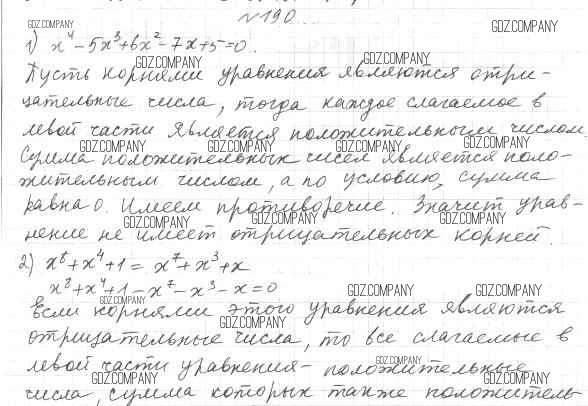 №190.
GDZ.COMPANY GDZ.COMPANY
1) x⁴ - 5x³ + 6x² - 7x + 5 = 0.
GDZ.COMPANY GDZ.COMPANY
Пусть корнями уравнения являются отри-
цательные числа, тогда каждое слагаемое в
левой части является положительным числом
GDZ.COMPANY GDZ.COMPANY GDZ.COMPANY GDZ.COMPANY
Сумма положительных чисел является поло-
жительным числом, а по условию, сумма
равна 0. Имеем противоречие. Значит урав-
GDZ.COMPANY GDZ.COMPANY GDZ.COMPANY
нение не имеет отрицательных корней.
2) x⁸ + x⁴ + 1 = x⁷ + x³ + x
x⁸ + x⁴ + 1 - x⁷ - x³ - x = 0
GDZ.COMPANY GDZ.COMPANY GDZ.COMPANY
Если корнями этого уравнения являются
GDZ.COMPANY
отрицательные числа, то все слагаемые в
левой части уравнения - положительные
GDZ.COMPANY GDZ.COMPANY GDZ.COMPANY
числа, сумма которых также положитель